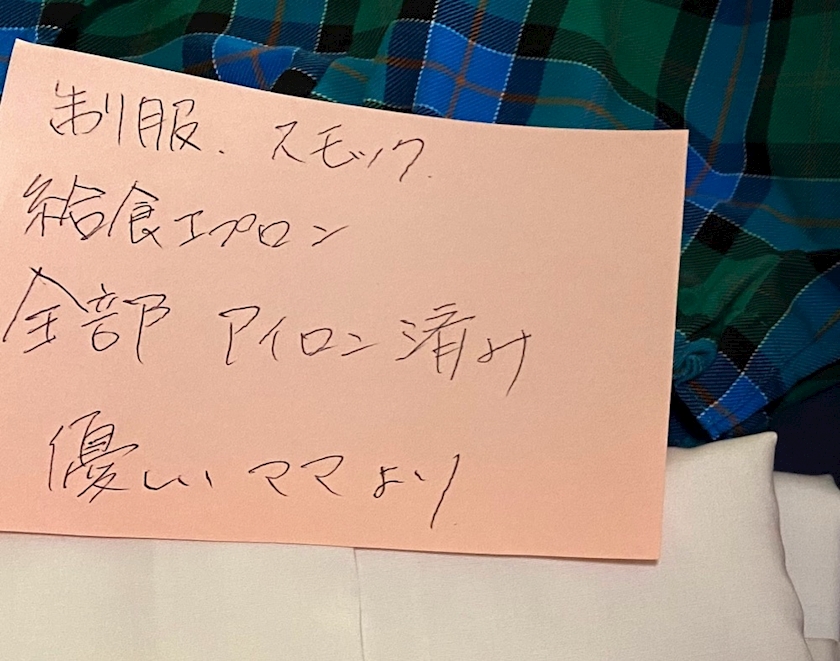 制服．スモック．
給食エプロン
全部 アイロン済み
優しい ママより